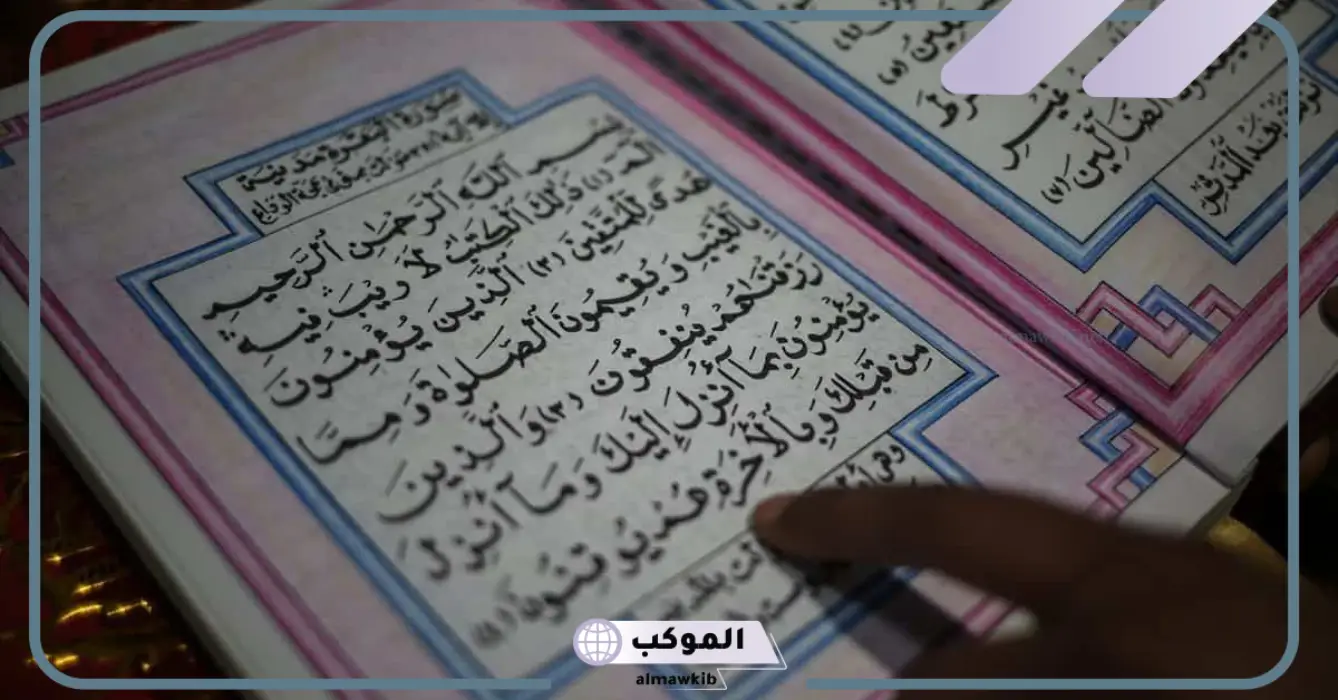 ٱلضَّآلِّينَ (٧)
نزلت بعد المدثر
سورة البقرة مدنية
بِسْمِ ٱللَّهِ ٱلرَّحْمَٰنِ ٱلرَّحِيمِ
الٓمٓ (١) ذَٰلِكَ ٱلْكِتَٰبُ لَا رَيْبَ فِيهِ
هُدًى لِّلْمُتَّقِينَ (٢) ٱلَّذِينَ يُؤْمِنُونَ
بِٱلْغَيْبِ وَيُقِيمُونَ ٱلصَّلَوٰةَ وَمِمَّا
رَزَقْنَٰهُمْ يُنفِقُونَ (٣) وَٱلَّذِينَ
يُؤْمِنُونَ بِمَآ أُنزِلَ إِلَيْكَ وَمَآ أُنزِلَ
مِن قَبْلِكَ وَبِٱلْأَخِرَةِ هُمْ يُوقِنُونَ (٤)
الموكب
almawkib